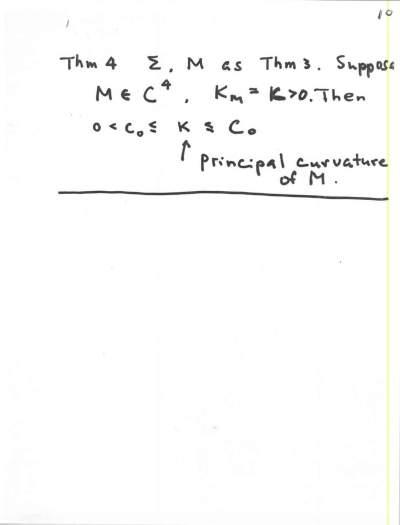 10
Thm 4 Σ, M as Thm 3. Suppose
M ∈ C⁴, K_M = K > 0. Then
0 < c₀ ≤ κ ≤ C₀
↑ principal curvature
of M.